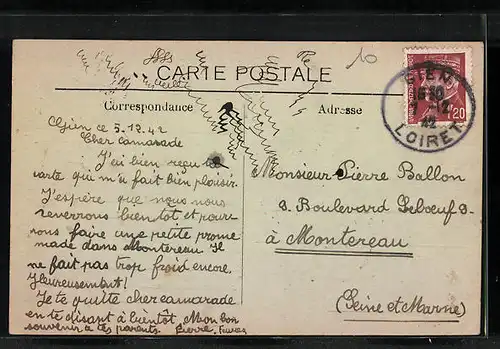 10
CARTE POSTALE
Correspondance
Adresse
GIEN
12
42
LOIRET
1F20
Gien ce 5.12.42
Cher camarade
J'ai bien reçu ta
carte qui m'a fait bien plaisir.
J'espère que nous nous
reverrons bientôt et pour-
rons faire une petite prome
nade dans Montereau Il
ne fait pas trop froid encore.
Heureusement!
Je te quitte cher camarade
en te disant à bientôt. Mon bon
souvenir à tes parents. Pierre.
Monsieur Pierre Ballon
3. Boulevard Leboeuf 3.
à Montereau
(Seine et Marne)